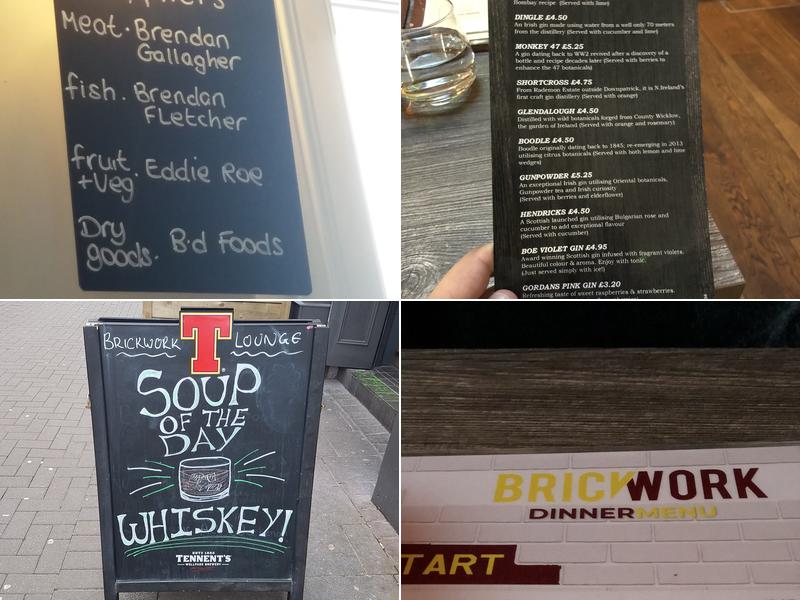 Meat. Brendan
Gallagher
fish. Brendan
Fletcher
fruit. Eddie Roe
+Veg
Dry
goods. B.d Foods
Bombay recipe (Served with lime)
DINGLE £4.50
An Irish gin made using water from a well only 70 meters
from the distillery (Served with cucumber and lime)
MONKEY 47 £5.25
A gin dating back to WW2 revived after a discovery of a
bottle and recipe decades later (Served with berries to
enhance the 47 botanicals)
SHORTCROSS £4.75
From Rademon Estate outside Downpatrick, it is N.Ireland's
first craft gin distillery (Served with orange)
GLENDALOUGH £4.50
Distilled with wild botanicals forged from County Wicklow,
the garden of Ireland (Served with orange and rosemary)
BOODLE £4.50
Boodle originally dating back to 1845, re-emerging in 2013
utilising citrus botanicals (Served with both lemon and lime
wedges)
GUNPOWDER £5.25
An exceptional Irish gin utilising Oriental botanicals,
Gunpowder tea and Irish curiosity
(Served with berries and elderflower)
HENDRICKS £4.50
A Scottish launched gin utilising Bulgarian rose and
cucumber to add exceptional flavour
(Served with cucumber)
BOE VIOLET GIN £4.95
Award winning Scottish gin infused with fragrant violets.
Beautiful colour & aroma. Enjoy with tonic.
(Just served simply with ice!)
GORDANS PINK GIN £3.20
Refreshing taste of sweet raspberries & strawberries.
BRICKWORK T LOUNGE
SOUP
OF THE
DAY
WHISKEY!
TENNENT'S
WELLPARK BREWERY
BRICKWORK
DINNERMENU
TART